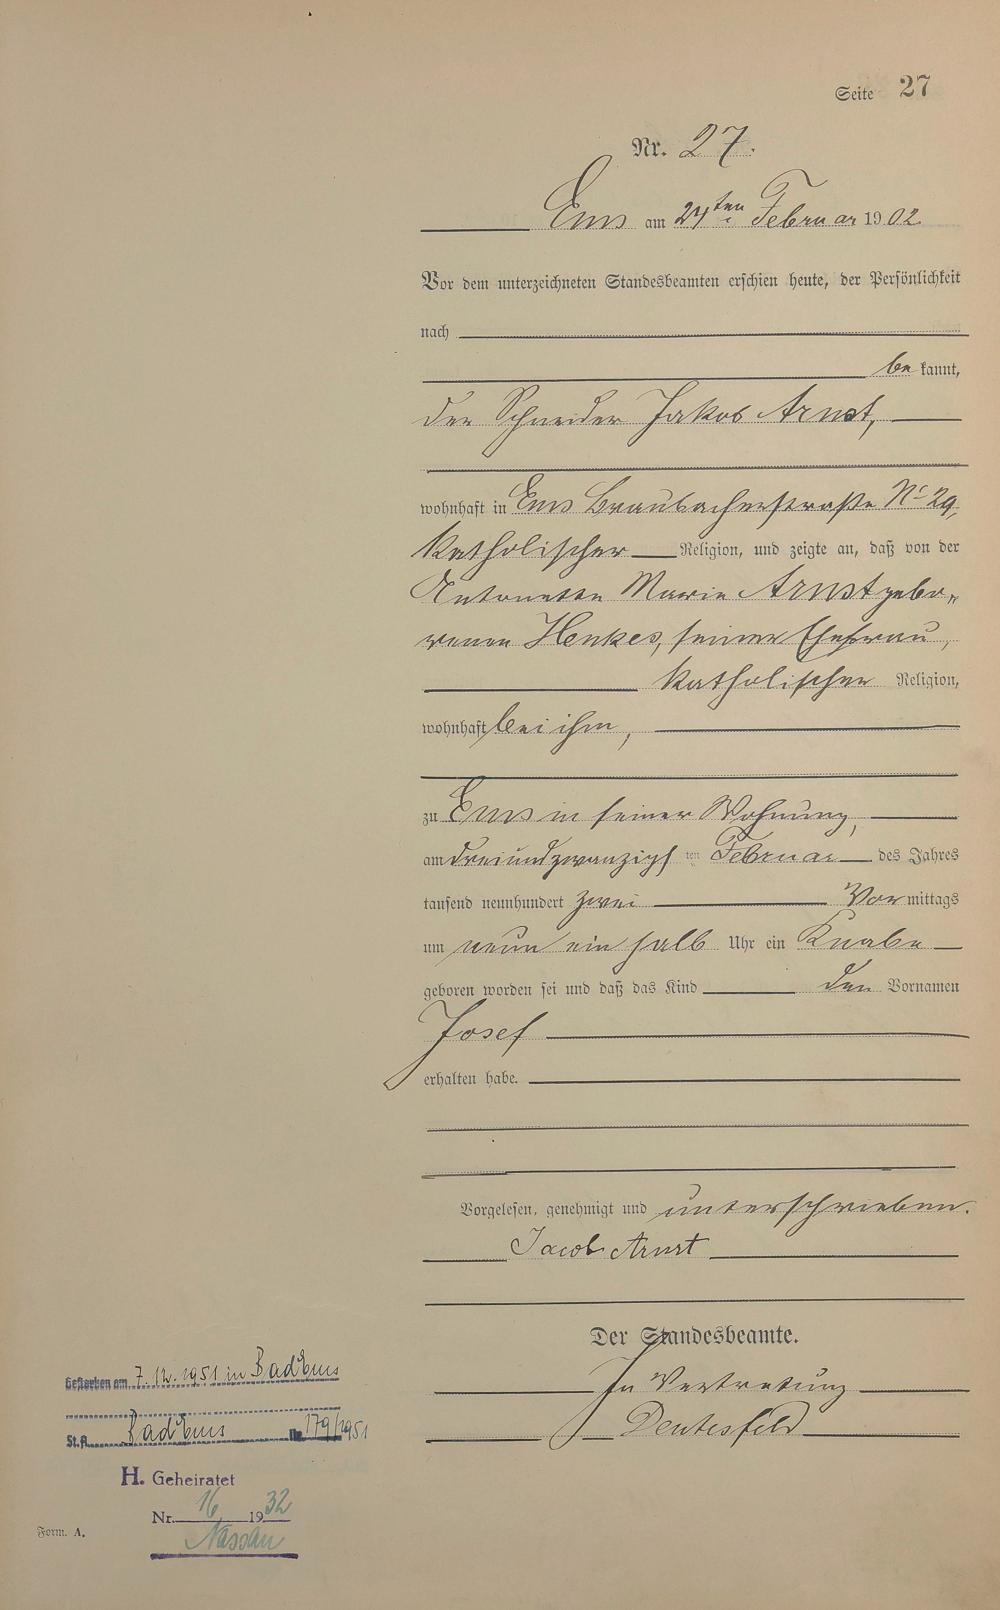 Seite 27
Nr. 27.
Ems am 24ten Februar 1902
Vor dem unterzeichneten Standesbeamten erschien heute, der Persönlichkeit
nach
be kannt,
der Schneider Jakob Arnst,
wohnhaft in Ems Braubacherstraße No 29,
katholischer Religion, und zeigte an, daß von der
Antonette Marie Arnst gebo„
renen Henkes, seiner Ehefrau,
katholischer Religion,
wohnhaft bei ihm,
zu Ems in seiner Wohnung,
am dreiundzwanzigs ten Februar des Jahres
tausend neunhundert zwei Vor mittags
um neun ein halb Uhr ein Knabe
geboren worden sei und daß das Kind den Vornamen
Josef
erhalten habe.
Vorgelesen, genehmigt und unterschrieben.
Jacob Arnst
Der Standesbeamte.
In Vertretung
Gestorben am 7.12.1951 in Bad Ems
St.A. Bad Ems Nr. 179/1951
H. Geheiratet
Nr. 16 1932
Nassau
Form. A.